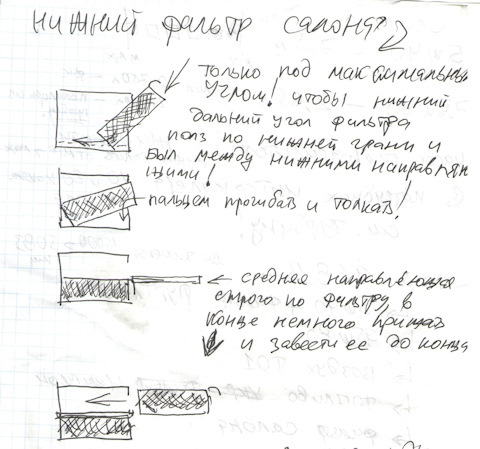 нижний фильтр салона
только под максимальным
углом! чтобы нижний
дальний угол фильтра
полз по нижней грани и
был между нижними направляю
щими!
пальцем прогибать и толкать!
← средняя направляющая
строго по фильтру, в
конце немного прижать
и завести ее до конца